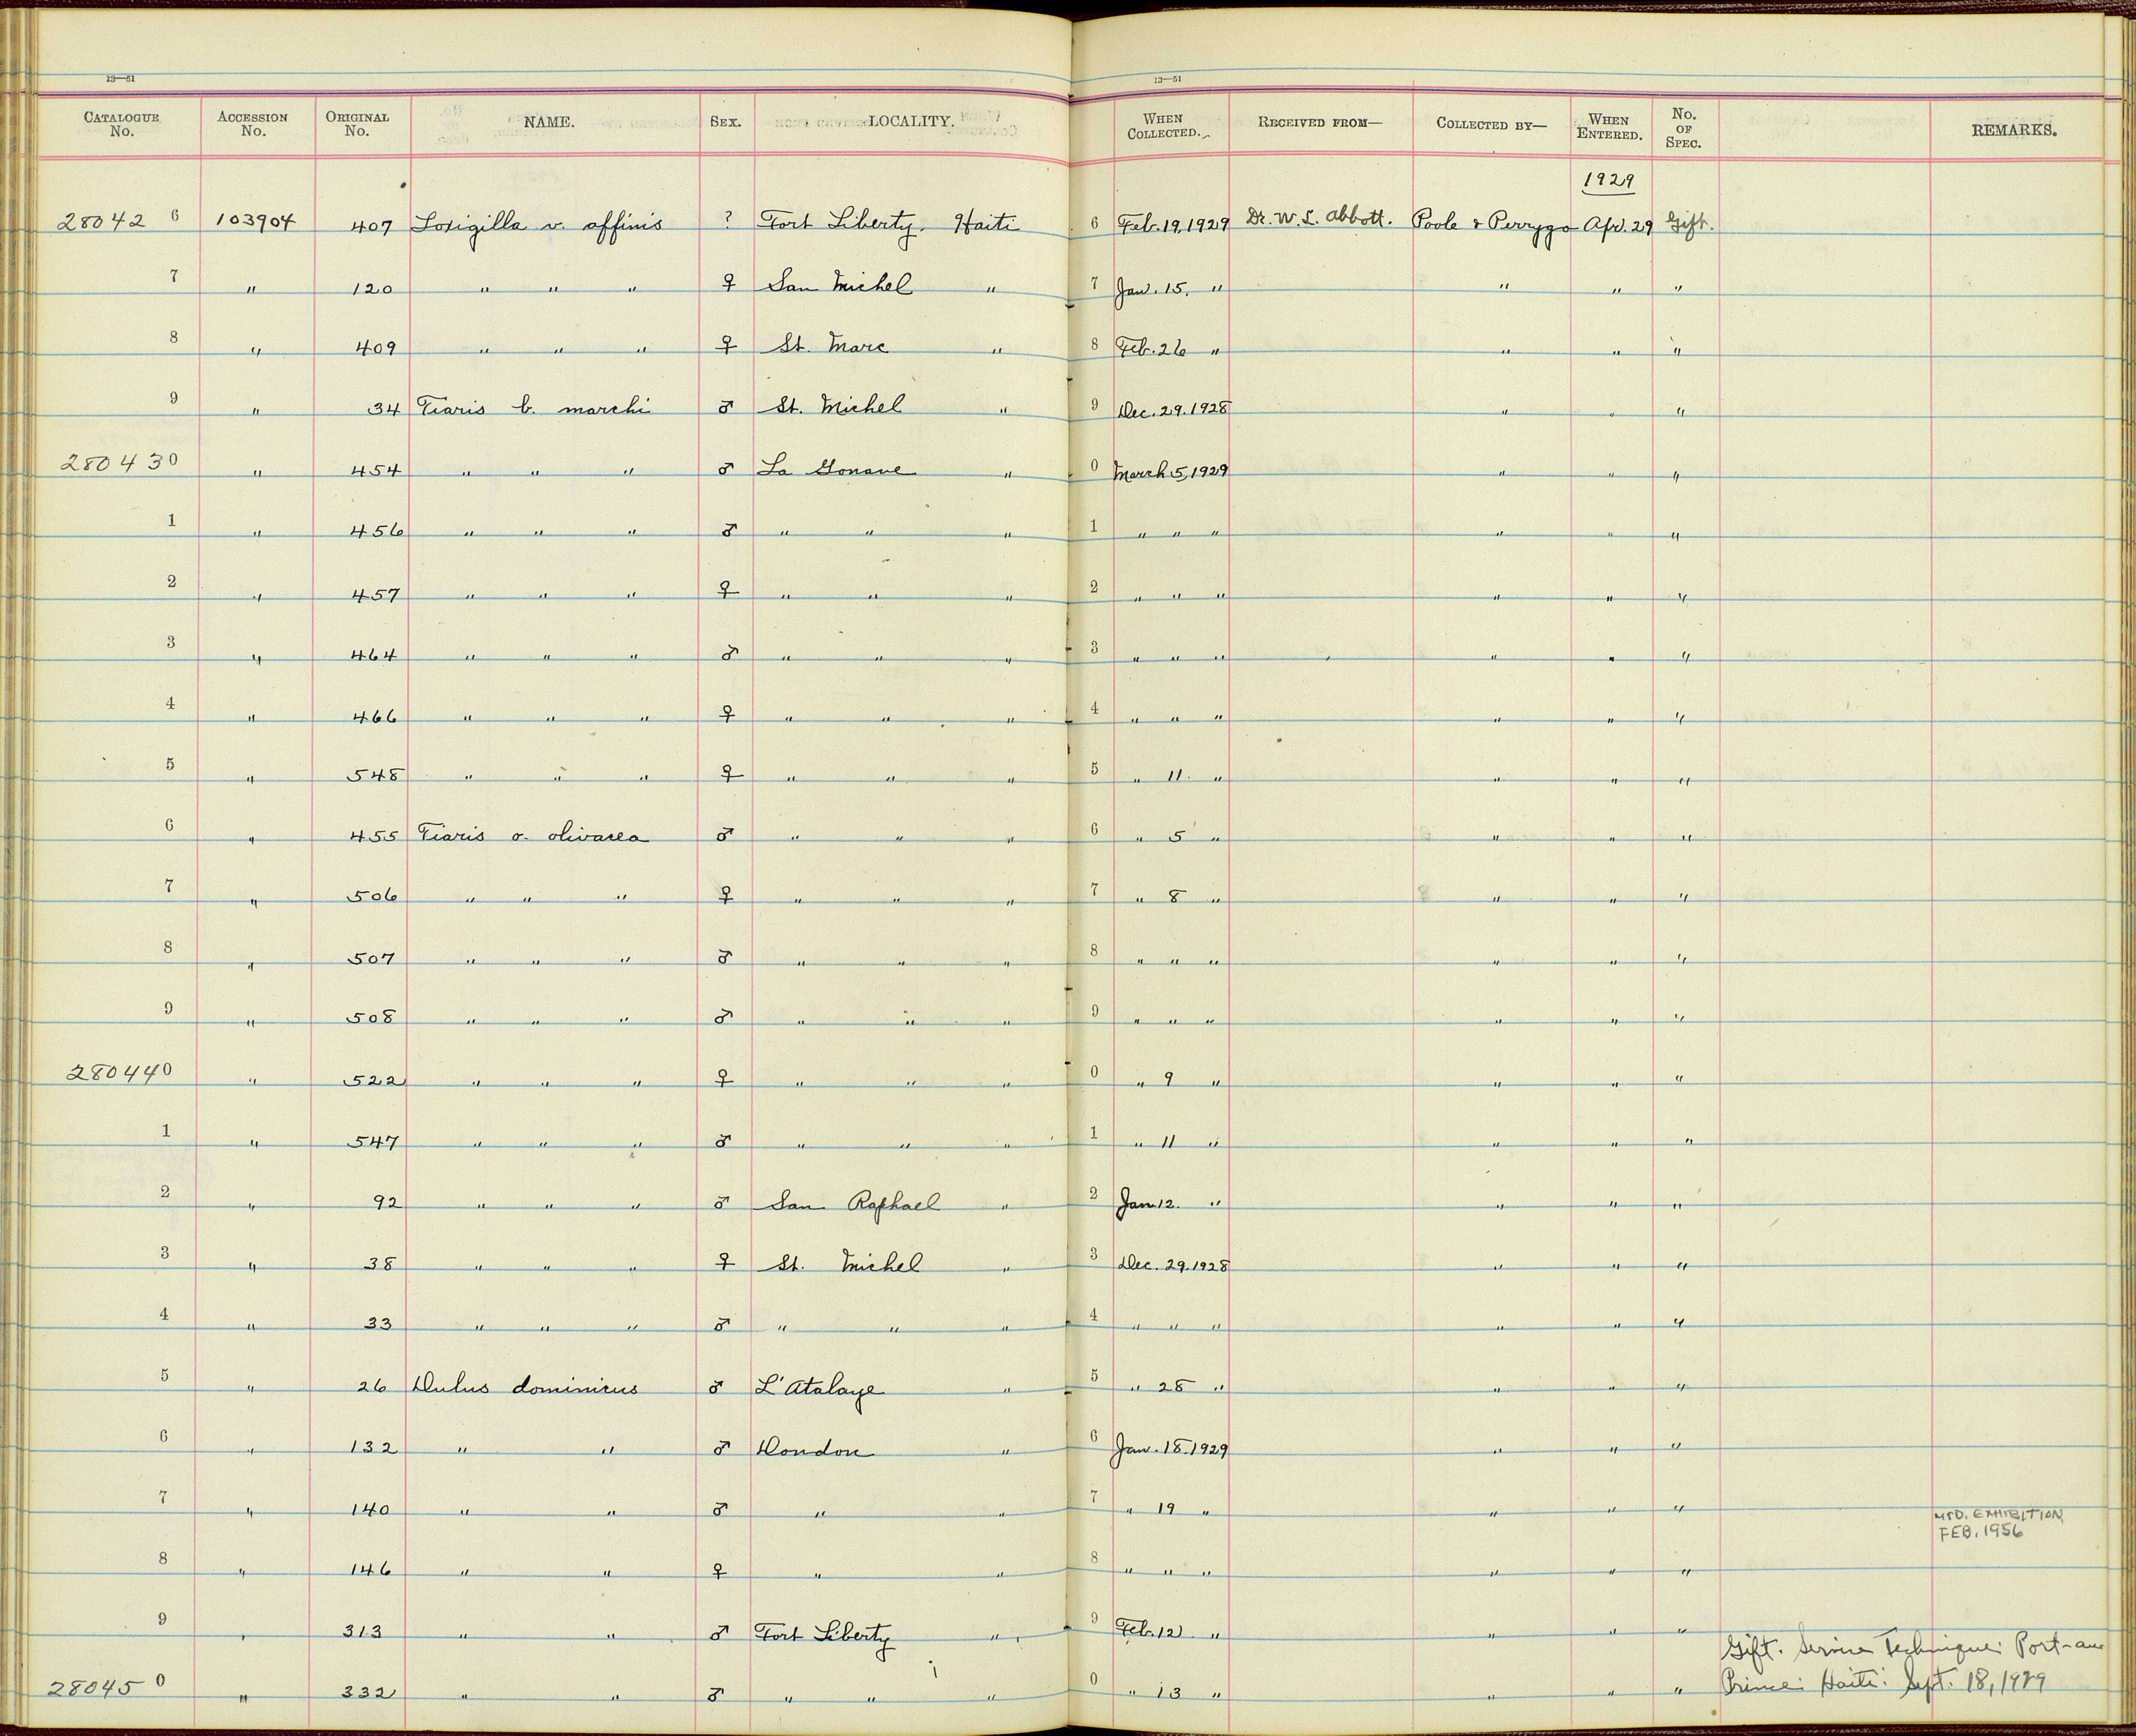 13—51
13—51
CATALOGUE No. ACCESSION No. ORIGINAL No. NAME. SEX. LOCALITY. WHEN COLLECTED. RECEIVED FROM— COLLECTED BY— WHEN ENTERED. No. OF SPEC. REMARKS.
1929
28042 6 103904 407 Loxigilla v. affinis ? Fort Liberty. Haiti 6 Feb. 19, 1929 Dr. W. L. Abbott. Poole & Perrygo Apr. 29 Gift.
7 " 120 " " " ♀ San Michel " 7 Jan. 15. " " " "
8 " 409 " " " ♀ St. Marc " 8 Feb. 26 " " " "
9 " 34 Tiaris b. marchi ♂ St. Michel " 9 Dec. 29. 1928 " " "
28043 0 " 454 " " " ♂ La Gonave " 0 March 5, 1929 " " "
1 " 456 " " " ♂ " " " 1 " " " " " "
2 " 457 " " " ♀ " " " 2 " " " " " "
3 " 464 " " " ♂ " " " 3 " " " " " "
4 " 466 " " " ♀ " " " 4 " " " " " "
5 " 548 " " " ♀ " " " 5 " 11. " " " "
6 " 455 Tiaris o. olivacea ♂ " " " 6 " 5 " " " "
7 " 506 " " " ♀ " " " 7 " 8 " " " "
8 " 507 " " " ♂ " " " 8 " " " " " "
9 " 508 " " " ♂ " " " 9 " " " " " "
28044 0 " 522 " " " ♀ " " " 0 " 9 " " " "
1 " 547 " " " ♂ " " " 1 " 11 " " " "
2 " 92 " " " ♂ San Raphael " 2 Jan 12. " " " "
3 " 38 " " " ♀ St. Michel " 3 Dec. 29. 1928 " " "
4 " 33 " " " ♂ " " " 4 " " " " " "
5 " 26 Dulus dominicus ♂ L'Atalaye " 5 " 28 " " " "
6 " 132 " " ♂ Dondon " 6 Jan. 18. 1929 " " "
7 " 140 " " ♂ " " 7 " 19 " " " " MTD. EXHIBITION,
FEB, 1956
8 " 146 " " ♀ " " 8 " " " " " "
9 " 313 " " ♂ Fort Liberty " 9 Feb. 12 " " " "
Gift. Service Technique: Port-au
28045 0 " 332 " " ♂ " " " 0 " 13 " " " " Prince: Haiti: Sept. 18, 1929